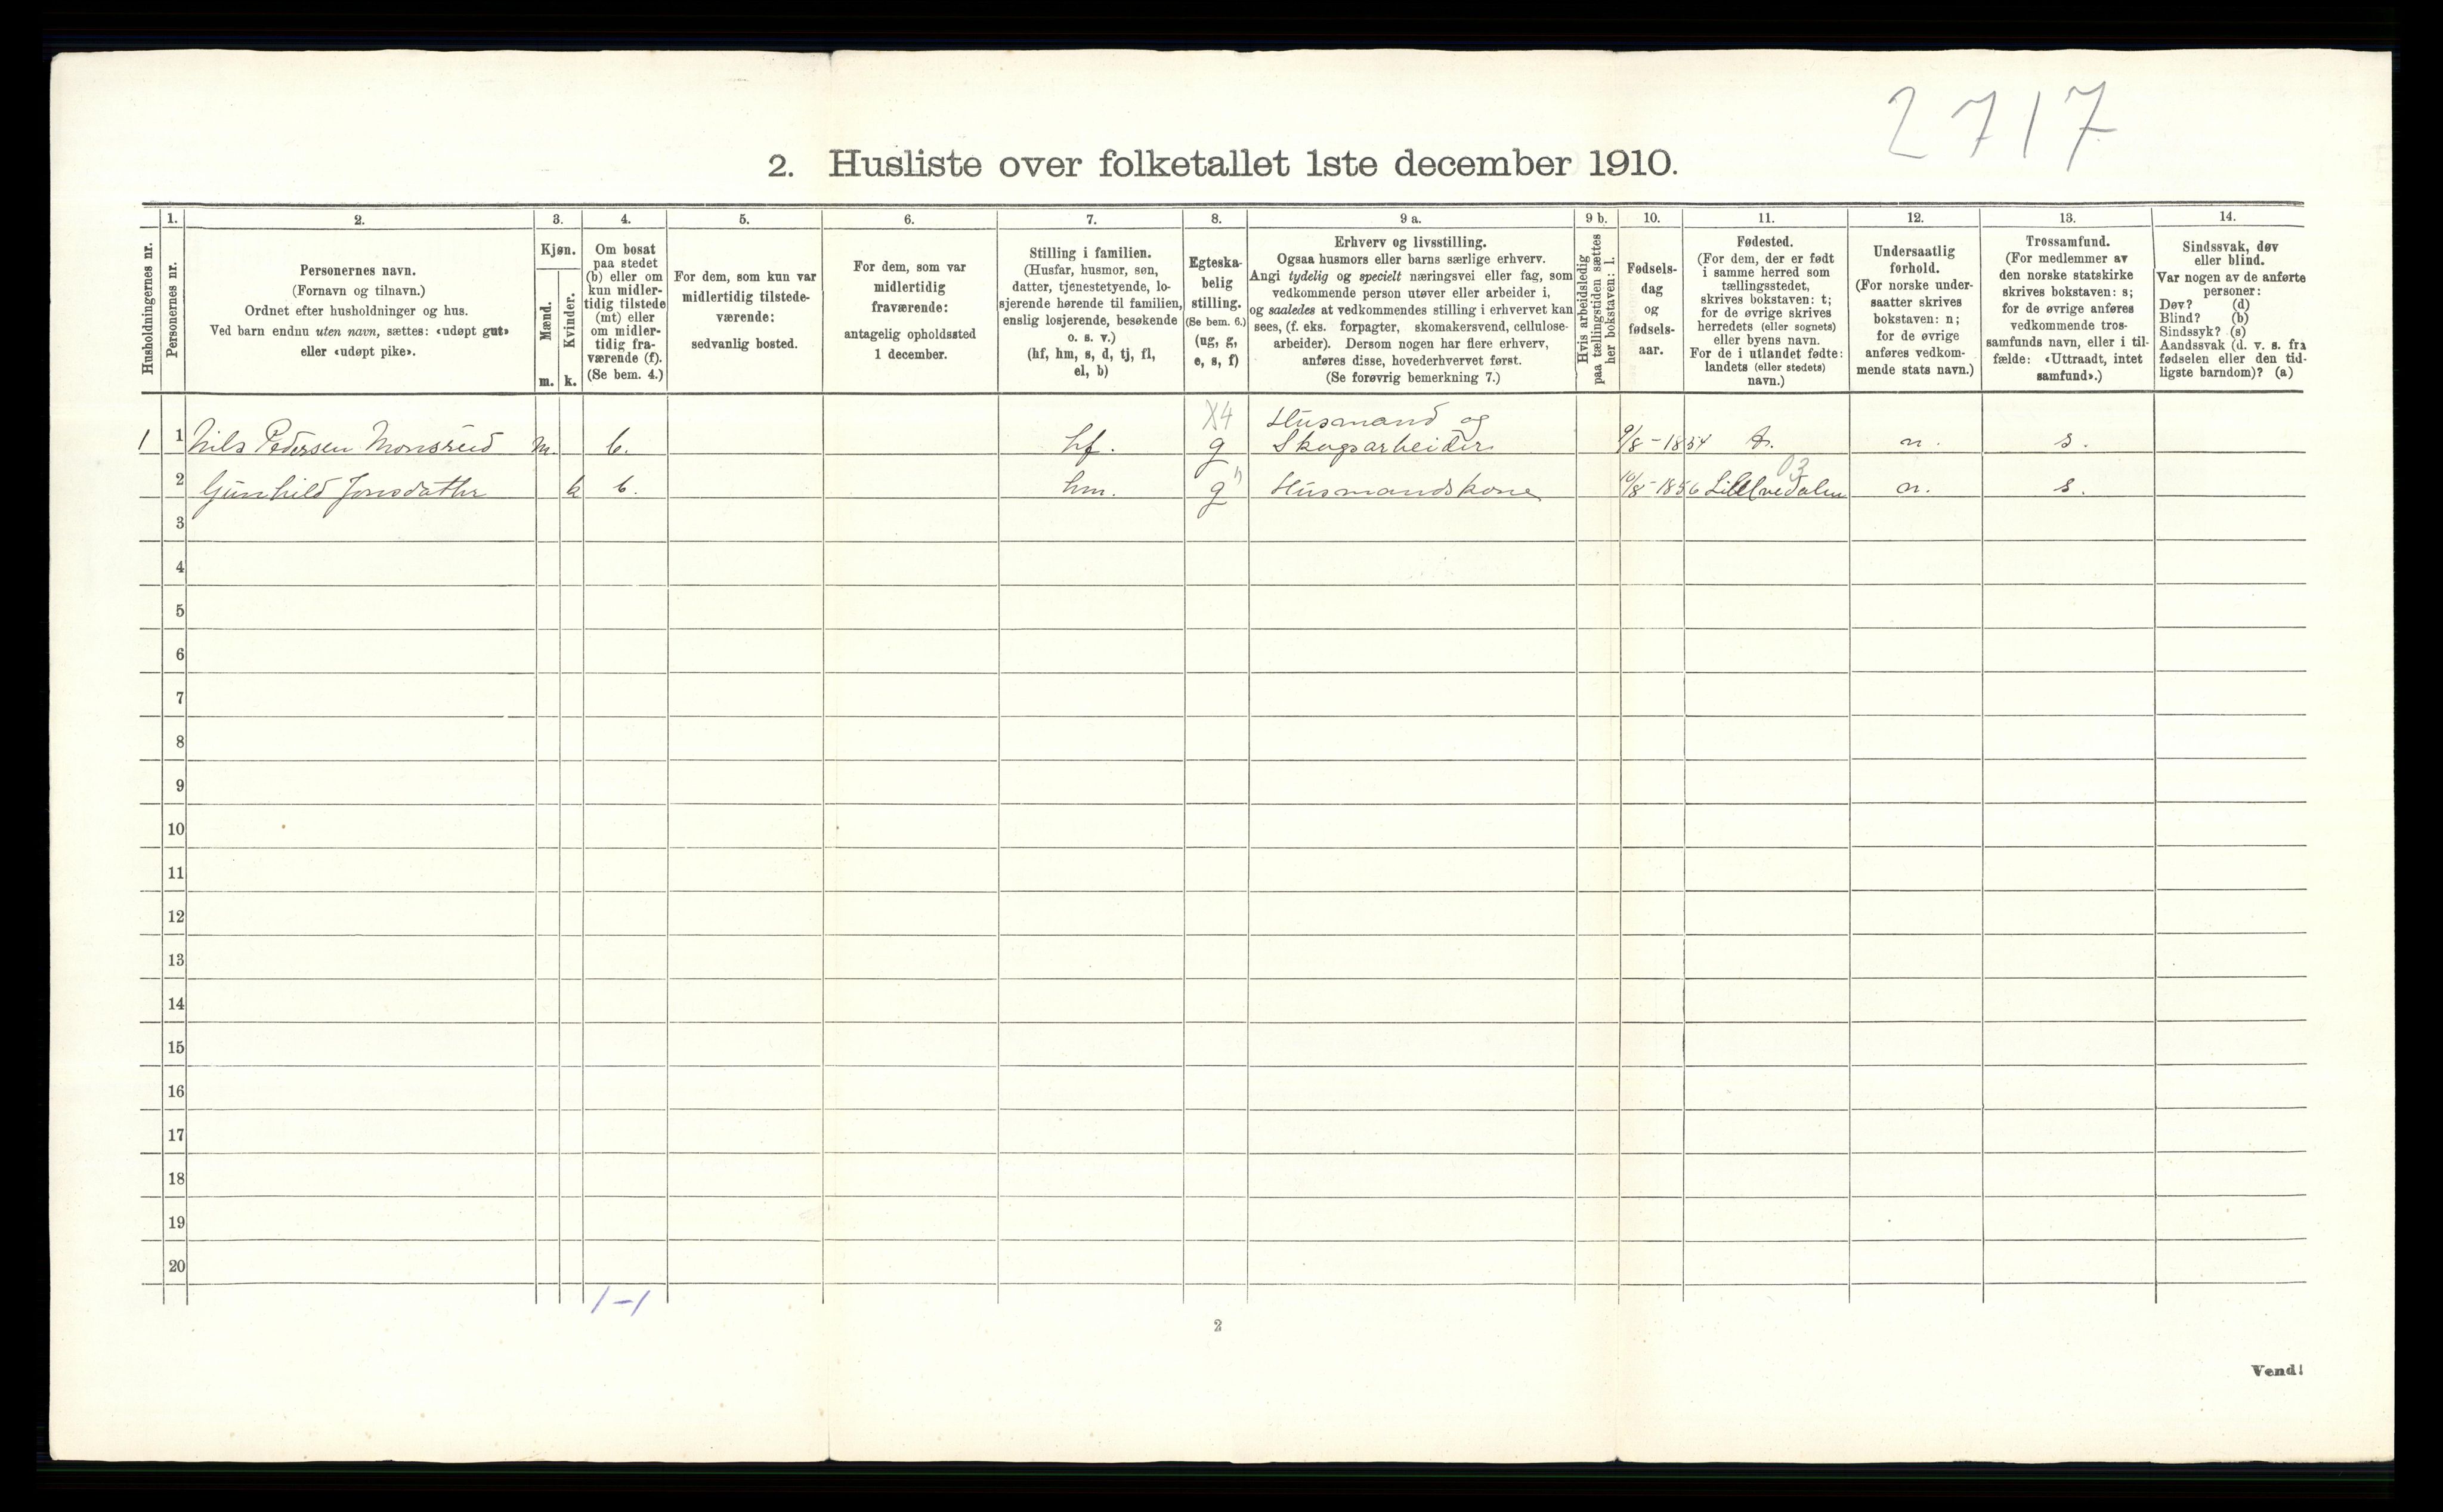 2717
2. Husliste over folketallet 1ste december 1910.
1. 2. 3. 4. 5. 6. 7. 8. 9 a. 9 b. 10. 11. 12. 13. 14.
Husholdningernes nr.
Personernes nr.
Personernes navn.
(Fornavn og tilnavn.)
Ordnet efter husholdninger og hus.
Ved barn endnu uten navn, sættes: «udøpt gut»
eller «udøpt pike».
Kjøn.
Mænd.
Kvinder.
m. k.
Om bosat
paa stedet
(b) eller om
kun midler-
tidig tilstede
(mt) eller
om midler-
tidig fra-
værende (f).
(Se bem. 4.)
For dem, som kun var
midlertidig tilstede-
værende:
sedvanlig bosted.
For dem, som var
midlertidig
fraværende:
antagelig opholdssted
1 december.
Stilling i familien.
(Husfar, husmor, søn,
datter, tjenestetyende, lo-
sjerende hørende til familien,
enslig losjerende, besøkende
o. s. v.)
(hf, hm, s, d, tj, fl,
el, b)
Egteska-
belig
stilling.
(Se bem. 6.)
(ug, g,
e, s, f)
Erhverv og livsstilling.
Ogsaa husmors eller barns særlige erhverv.
Angi tydelig og specielt næringsvei eller fag, som
vedkommende person utøver eller arbeider i,
og saaledes at vedkommendes stilling i erhvervet kan
sees, (f. eks. forpagter, skomakersvend, cellulose-
arbeider). Dersom nogen har flere erhverv,
anføres disse, hovederhvervet først.
(Se forøvrig bemerkning 7.)
Hvis arbeidsledig
paa tællingstiden sættes
her bokstaven: l.
Fødsels-
dag
og
fødsels-
aar.
Fødested.
(For dem, der er født
i samme herred som
tællingsstedet,
skrives bokstaven: t;
for de øvrige skrives
herredets (eller sognets)
eller byens navn.
For de i utlandet fødte:
landets (eller stedets)
navn.)
Undersaatlig
forhold.
(For norske under-
saatter skrives
bokstaven: n;
for de øvrige
anføres vedkom-
mende stats navn.)
Trossamfund.
(For medlemmer av
den norske statskirke
skrives bokstaven: s;
for de øvrige anføres
vedkommende tros-
samfunds navn, eller i til-
fælde: «Uttraadt, intet
samfund».)
Sindssvak, døv
eller blind.
Var nogen av de anførte
personer:
Døv? (d)
Blind? (b)
Sindssyk? (s)
Aandssvak (d. v. s. fra
fødselen eller den tid-
ligste barndom)? (a)
X4 Husmand og
1 1 Nils Pedersen Monsreid m. b. hf. g Skogsarbeider 9/8-1854 t. n. s.
03
2 Gunhild Jonsdatter k b. hm. g Husmandskone 10/8-1856 Lillelvedalen n. s.
3
4
5
6
7
8
9
10
11
12
13
14
15
16
17
18
19
20
1-1
2
Vend!